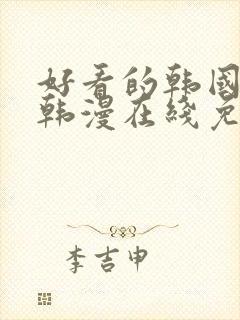 好看的韩国
韩漫在线免
李吉申